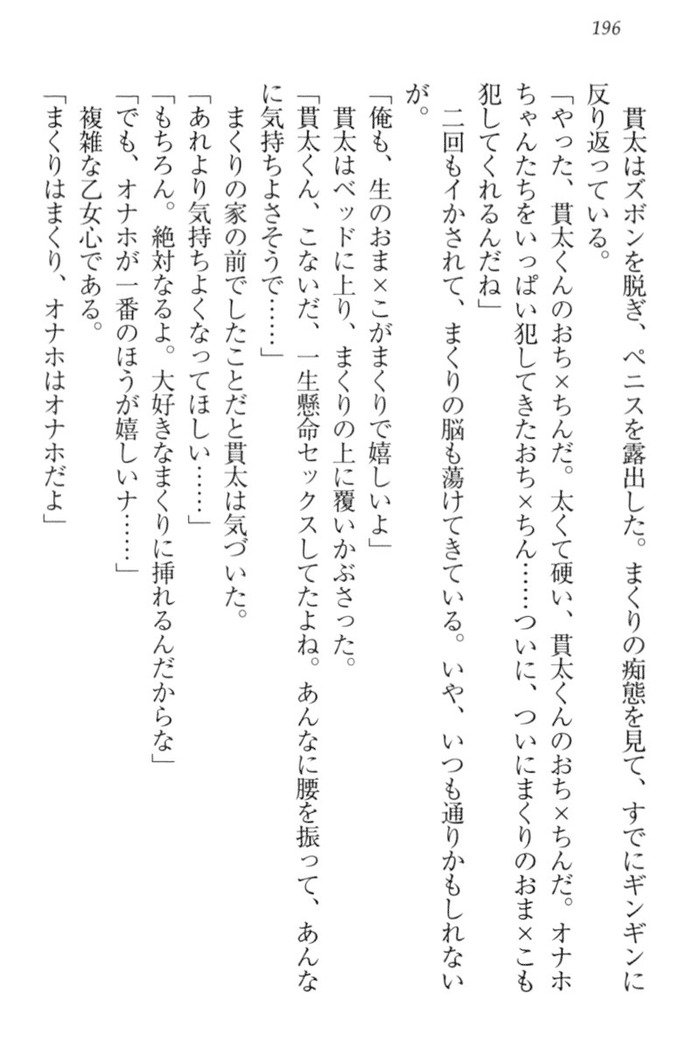 196
貫太はズボンを脱ぎ、ペニスを露出した。まくりの痴態を見て、すでにギンギンに
反り返っている。
「やった、貫太くんのおち×ちんだ。太くて硬い、貫太くんのおち×ちんだ。オナホ
ちゃんたちをいっぱい犯してきたおち×ちん……ついに、ついにまくりのおま×こも
犯してくれるんだね」
二回もイかされて、まくりの脳も蕩けてきている。いや、いつも通りかもしれない
が。
「俺も、生のおま×こがまくりで嬉しいよ」
貫太はベッドに上り、まくりの上に覆いかぶさった。
「貫太くん、こないだ、一生懸命セックスしてたよね。あんなに腰を振って、あんな
に気持ちよさそうで……」
まくりの家の前でしたことだと貫太は気づいた。
「あれより気持ちよくなってほしい……」
「もちろん。絶対なるよ。大好きなまくりに挿れるんだからな」
「でも、オナホが一番のほうが嬉しいナ……」
複雑な乙女心である。
「まくりはまくり、オナホはオナホだよ」